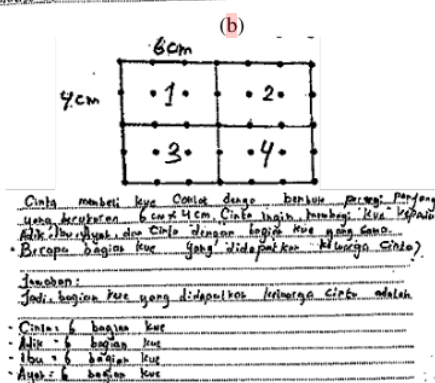 (b)
6cm
4cm
1 2
3 4
Cinta membeli kue Coklat dengo berbuk persegi panjang
yang berukuran 6 cm x 4 cm. Cinta Ingin membagi kue kepada
Adik, Ibu, Ayah dan Cinta dengan bagian kue yang sama.
• Berapa bagian kue yang didapatkan keluarga Cinta?
Jawaban:
Jadi, bagian kue yang didapatkan keluarga Cinta adalah
- Cinta = 6 bagian kue
- Adik = 6 bagian kue
- Ibu = 6 bagian kue
- Ayah = 6 bagian kue